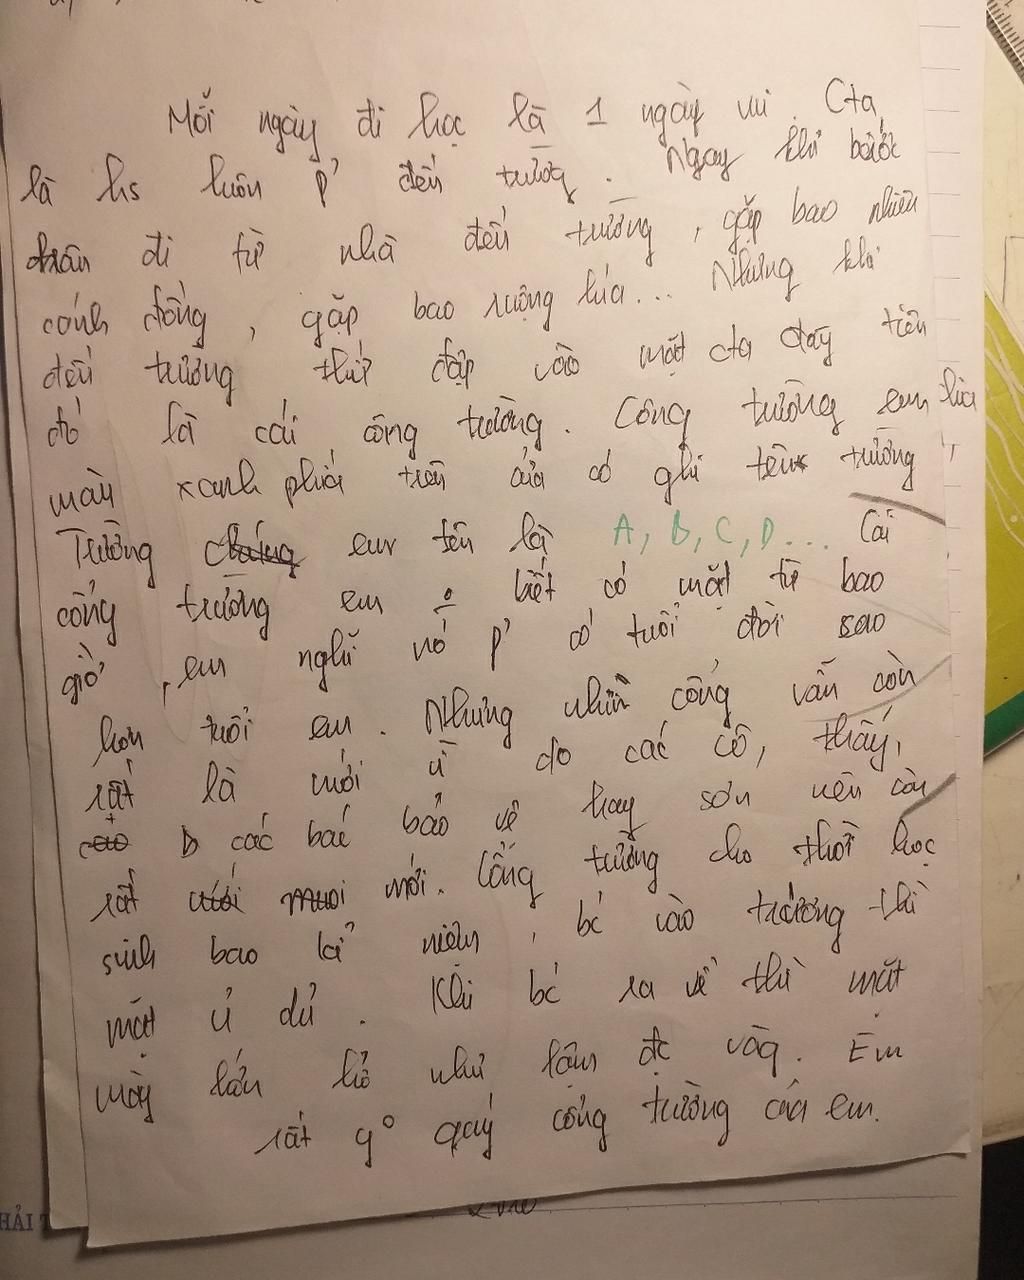 Mỗi ngày đi học là 1 ngày vui. Cta
là hs luôn p' đến trường. Ngay khi bước
chân đi từ nhà đến trường, gặp bao nhiêu
cánh đồng, gặp bao ruộng lúa... Nhưng khi
đến trường thứ đập vào mặt cta đầy tiên
đó là cái cổng trường. Cổng trường em là
màu xanh phía trên của có ghi tên trường,
Trường em tên là A, B, C, D... Cái
cổng trường em o biết có mặt từ bao
giờ, em nghĩ nó p' có tuổi đời sao
hơn tuổi em. Nhưng nhìn cổng vẫn còn
rất là mới vì do các cô, thầy,
+ các bác bảo vệ hay sơn nên còn
rất mới. Cổng trường cho thời học
sinh bao kỉ niệm, bc vào trường thì
mặt ủ dủ. Khi bc ra về thì mặt
mày lớn hở như lụm đc vàng. Em
rất yo quý cổng trường của em.
HẢI T